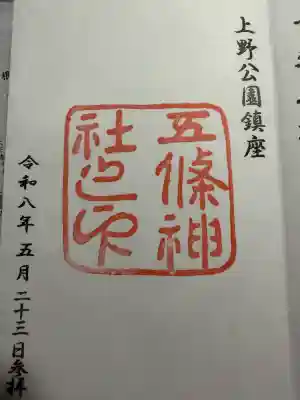 上野公園鎮座
五條神
社之印
令和八年五月二十三日参拝